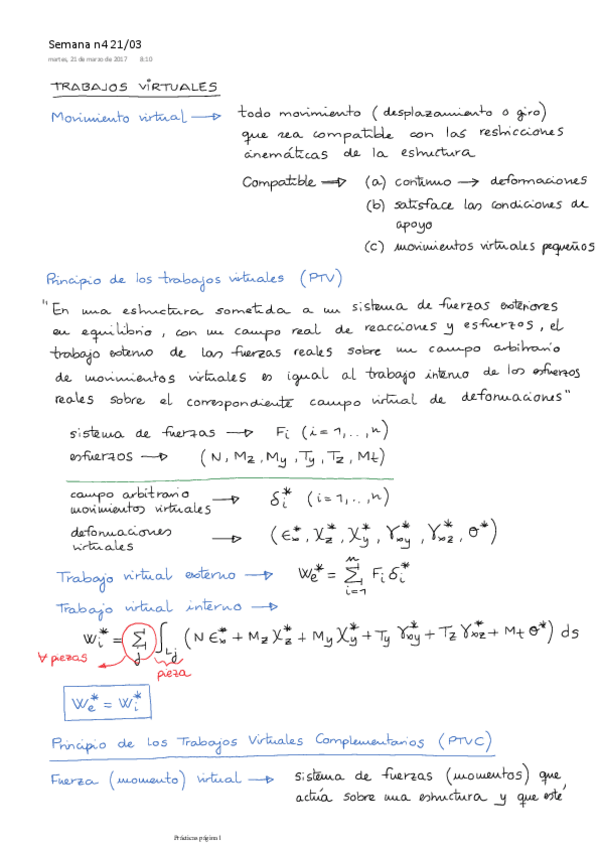 Semana n4 21/03
martes, 21 de marzo de 2017 8:10
TRABAJOS VIRTUALES
Movimiento virtual → todo movimiento (desplazamiento o giro)
que sea compatible con las restricciones
cinemáticas de la estructura
Compatible → (a) continuo → deformaciones
(b) satisface las condiciones de
apoyo
(c) movimientos virtuales pequeños
Principio de los trabajos virtuales (PTV)
"En una estructura sometida a un sistema de fuerzas exteriores
en equilibrio, con un campo real de reacciones y esfuerzos, el
trabajo externo de las fuerzas reales sobre un campo arbitrario
de movimientos virtuales es igual al trabajo interno de los esfuerzos
reales sobre el correspondiente campo virtual de deformaciones"
sistema de fuerzas → Fi (i=1,..,n)
esfuerzos → (N, Mz, My, Ty, Tz, Mt)
campo arbitrario
movimientos virtuales → δi* (i=1,..,n)
deformaciones
virtuales → (εx*, χz*, χy*, γxy*, γxz*, θ*)
Trabajo virtual externo → We* = Σ_{i=1}^{n} Fi δi*
Trabajo virtual interno →
Wi* = Σ_j ∫_{Lj} (N εx* + Mz χz* + My χy* + Ty γxy* + Tz γxz* + Mt θ*) ds
∀ piezas
pieza
We* = Wi*
Principio de los Trabajos Virtuales Complementarios (PTVC)
Fuerza (momento) virtual → sistema de fuerzas (momentos) que
actúa sobre una estructura y que esté
Prácticas página 1